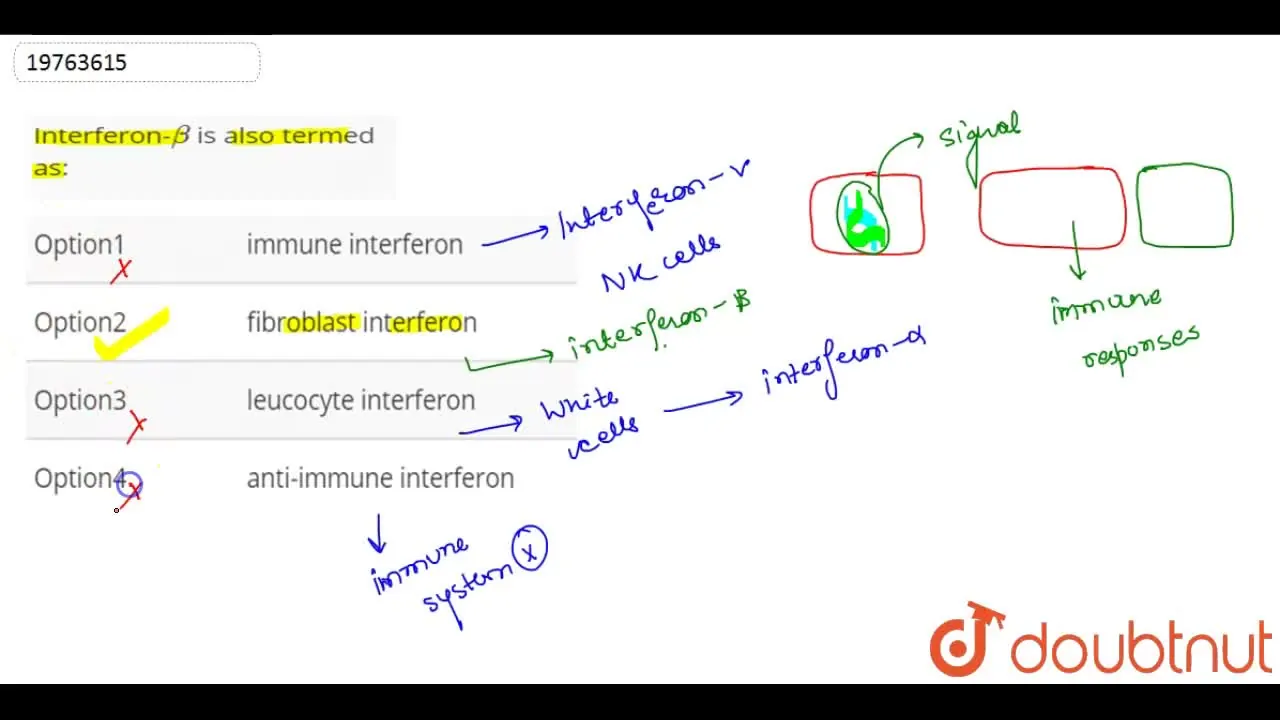 19763615
Interferon-β is also termed
as:
Option1 immune interferon
Option2 fibroblast interferon
Option3 leucocyte interferon
Option4 anti-immune interferon
Interferon-γ
NK cells
interferon-β
White
cells
interferon-α
immune
system X
signal
immune
responses
doubtnut